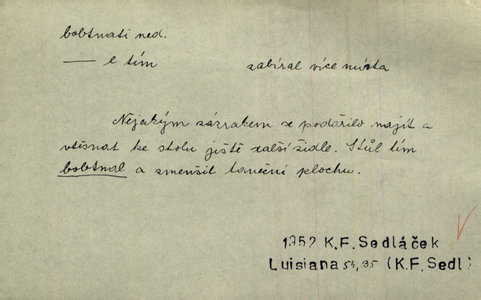 bobtnati ned.
— l tím zabíral více místa
Nějakým zázrakem se podařilo najít a
vtěsnat ke stolu ještě další židle. Stůl tím
bobtnal a zmenšil taneční plochu.
1952 K.F. Sedláček
Luisiana 54, 95 (K.F. Sedl)